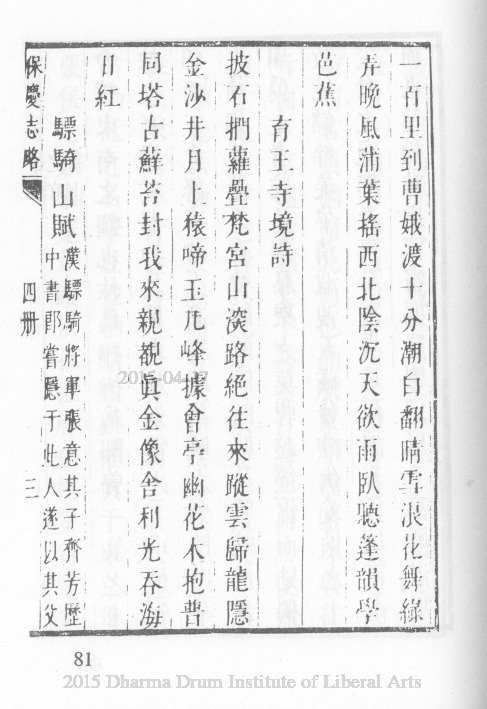 一百里到曹娥渡十分潮白翻晴雪浪花舞綠
弄晚風蒲葉搖西北陰沉天欲雨臥聽蓬韻學
芭蕉
育王寺境詩
披石捫蘿疊梵宮山深路絕往來蹤雲歸龍隱
金沙井月上猿啼玉几峰據會亭幽花木抱普
同塔古蘚苔封我來親覩眞金像舍利光吞海
日紅
驃騎山賦
漢驃騎將軍張意其子齊芳歷
中書郎嘗隱于此人遂以其父
保慶志略
四册
三
81
2015-04-17
2015 Dharma Drum Institute of Liberal Arts